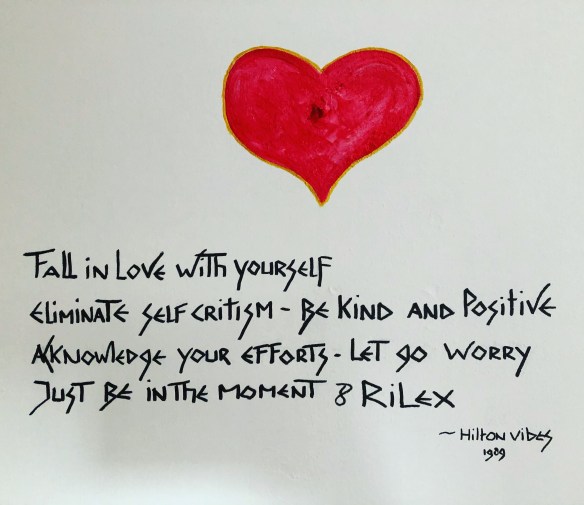 Fall in Love with yourself
Eliminate self critism - Be Kind and Positive
Acknowledge your efforts - Let go worry
Just Be in the moment & RiLex
~ Hilton Vibes
1989